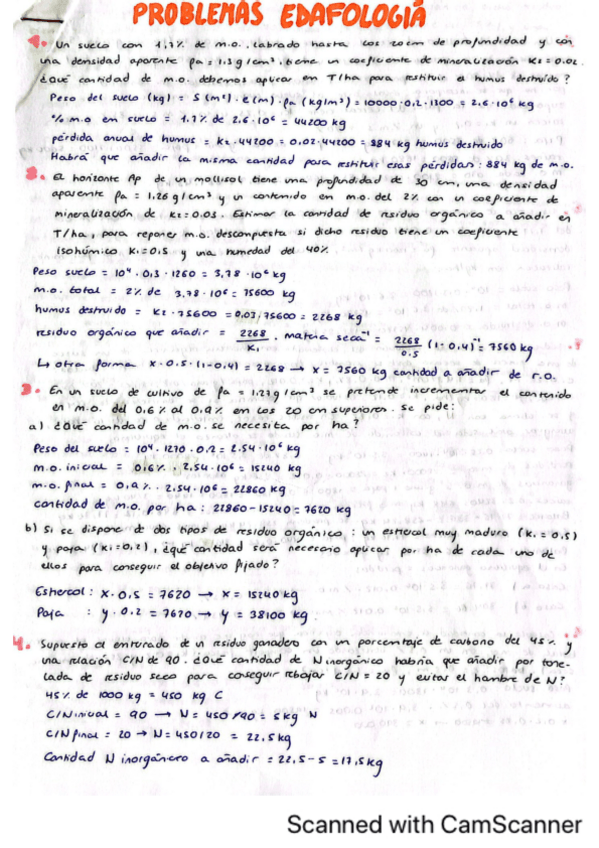 PROBLEMAS EDAFOLOGÍA
1. Un suelo con 1,7% de m.o., labrado hasta los 20 cm de profundidad y con
una densidad aparente ρa = 1.3 g/cm³, tiene un coeficiente de mineralización K2 = 0.02.
¿Qué cantidad de m.o. debemos aplicar en T/ha para restituir el humus destruido?
Peso del suelo (kg) = S (m²) . e (m) . ρa (kg/m³) = 10000 · 0.2 · 1300 = 2.6 · 10⁶ kg
% m.o en suelo = 1.7% de 2.6 · 10⁶ = 44200 kg
pérdida anual de humus = K2 · 44200 = 0.02 · 44200 = 884 kg humus destruido
Habrá que añadir la misma cantidad para restituir esas pérdidas: 884 kg de m.o.
2. El horizonte Ap de un mollisol tiene una profundidad de 30 cm, una densidad
aparente ρa = 1.26 g/cm³ y un contenido en m.o. del 2% con un coeficiente de
mineralización de K2 = 0.03. Estimar la cantidad de residuo orgánico a añadir en
T/ha, para reponer m.o. descompuesta si dicho residuo tiene un coeficiente
isohúmico K1 = 0.5 y una humedad del 40%.
Peso suelo = 10⁴ · 0,3 · 1260 = 3,78 · 10⁶ kg
m.o. total = 2% de 3.78 · 10⁶ = 75600 kg
humus destruido = K2 · 75600 = 0.03 · 75600 = 2268 kg
residuo orgánico que añadir = 2268/K1 . materia seca⁻¹ = 2268/0.5 (1-0.4)⁻¹ = 7560 kg
↳ otra forma x · 0.5 · (1-0.4) = 2268 → x = 7560 kg cantidad a añadir de r.o.
3. En un suelo de cultivo de ρa = 1.27 g/cm³ se pretende incrementar el contenido
en m.o. del 0.6% al 0.9% en los 20 cm superiores. Se pide:
a) ¿Qué cantidad de m.o. se necesita por ha?
Peso del suelo = 10⁴ · 1270 · 0.2 = 2.54 · 10⁶ kg
m.o. inicial = 0.6% · 2.54 · 10⁶ = 15240 kg
m.o. final = 0,9% · 2.54 · 10⁶ = 22860 kg
cantidad de m.o. por ha : 22860 - 15240 = 7620 kg
b) Si se dispone de dos tipos de residuo orgánico : un estiércol muy maduro (K1 = 0.5)
y paja (K1 = 0,2), ¿qué cantidad será necesario aplicar por ha de cada uno de
ellos para conseguir el objetivo fijado?
Estiércol : x · 0,5 = 7620 → x = 15240 kg
Paja : y · 0.2 = 7620 → y = 38100 kg.
4. Supuesto el enterrado de un residuo ganadero con un porcentaje de carbono del 45% y
una relación C/N de 90. ¿Qué cantidad de N inorgánico habría que añadir por tone-
lada de residuo seco para conseguir rebajar C/N = 20 y evitar el hambre de N?
45% de 1000 kg = 450 kg C
C/N inicial = 90 → N = 450/90 = 5 kg N
C/N final = 20 → N = 450/20 = 22,5 kg
Cantidad N inorgánico a añadir = 22,5 - 5 = 17,5 kg
Scanned with CamScanner